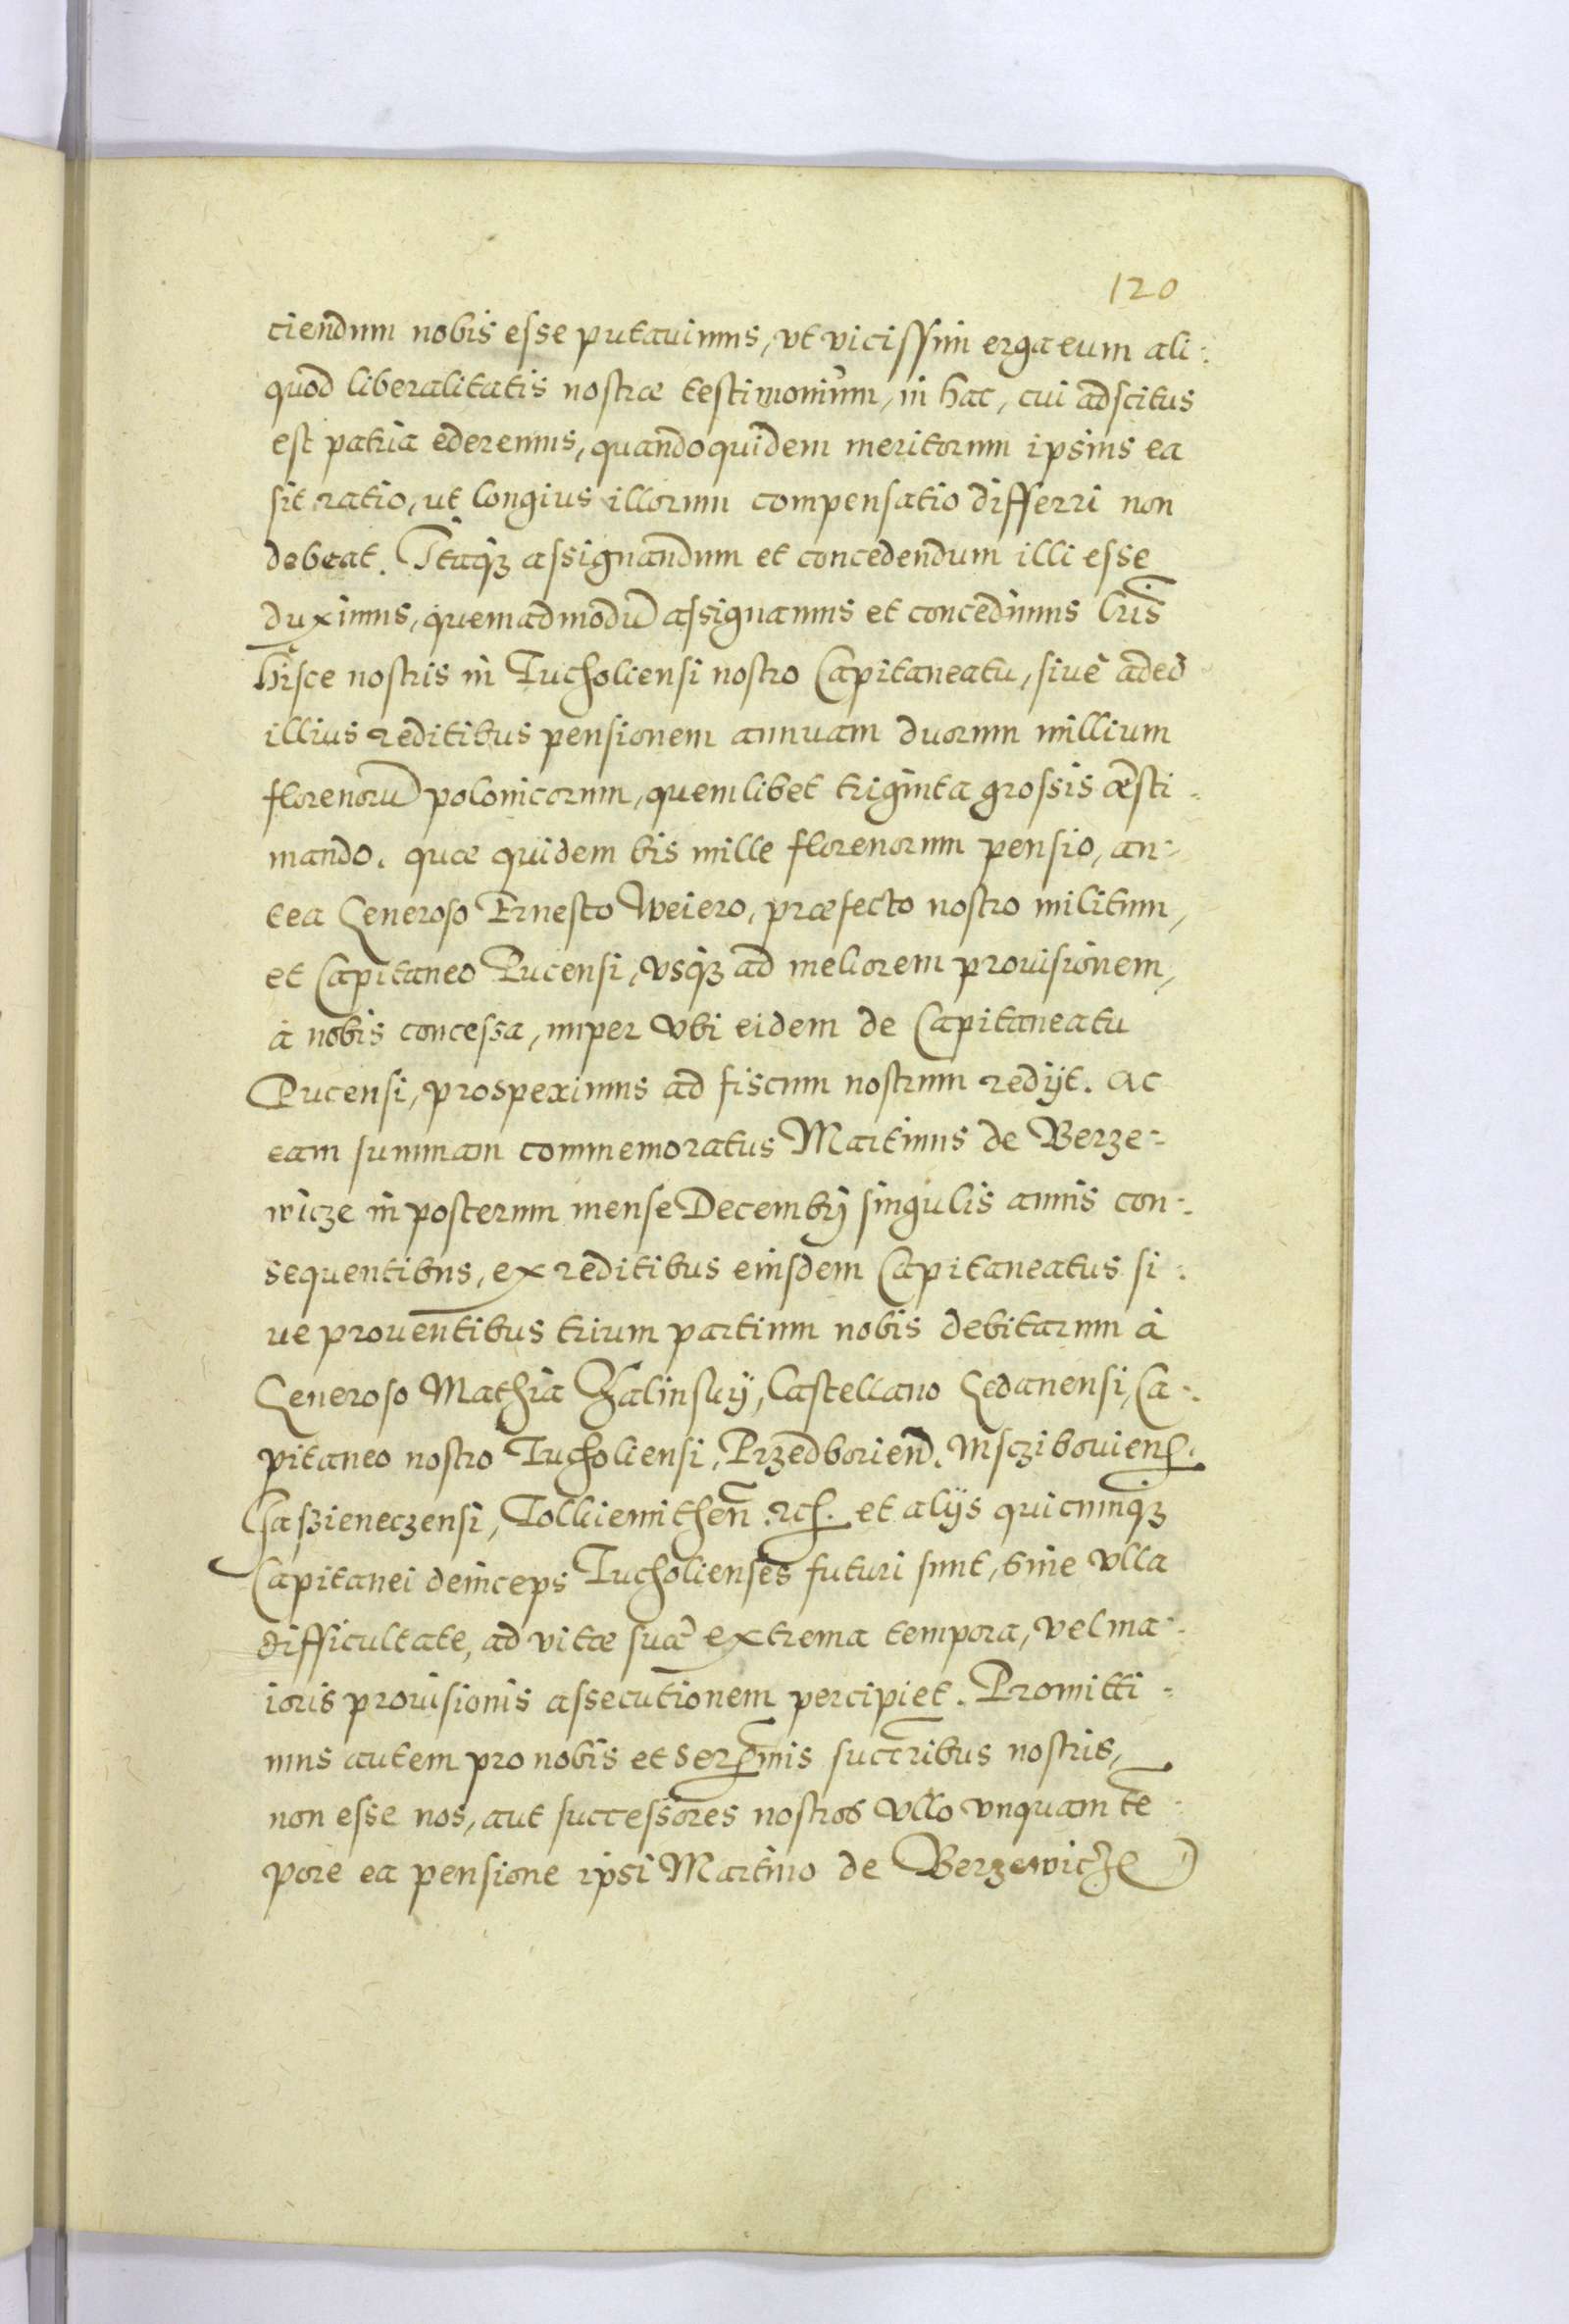 120
ciendum nobis esse putauimus, vt vicissim erga eum ali-
quod liberalitatis nostræ testimonium, in hac, cui adscitus
est patria ederemus, quandoquidem meritorum ipsius ea
sit ratio, ut longius illorum compensatio differri non
debeat. Itaq3 assignandum et concedendum illi esse
duximus, quemadmodũ assignamus et concedimus lrĩs
hisce nostris in Tucholiensi nostro Capitaneatu, siuè adeò
illius reditibus pensionem annuam duorum millium
florenorũ polonicorum, quemlibet triginta grossis æsti-
mando. quæ quidem bis mille florenorum pensio, an-
tea Generoso Ernesto Weiero, præfecto nostro militum,
et Capitaneo Pucensi, vsq3 ad meliorem prouisionem,
à nobis concessa, nuper vbi eidem de Capitaneatu
Pucensi, prospeximus ad fiscum nostrum redijt. Ac
eam summam commemoratus Martinus de Berze-
wicze in posterum mense Decembrj singulis annis con-
sequentibus, ex reditibus eiusdem Capitaneatus si-
ue prouentibus trium partium nobis debitarum à
Generoso Mathia Zalinskij, Castellano Gedanensi, Ca-
pitaneo nostro Tucholiensi, Przedborieñ. Msczibouieñ.
Jaszieneczensi, Tolkiemitheñ. et alijs quicumq3
Capitanei deinceps Tucholienses futuri sunt, sine vlla
difficultate, ad vitæ suæ extrema tempora, vel ma-
ioris prouisionis assecutionem percipiet. Promitti-
mus autem pro nobis et Serẽmis succr̃ibus nostris,
non esse nos, aut successores nostros vllo vnquam tẽ-
pore ea pensione ipsi Martino de Berzewicze